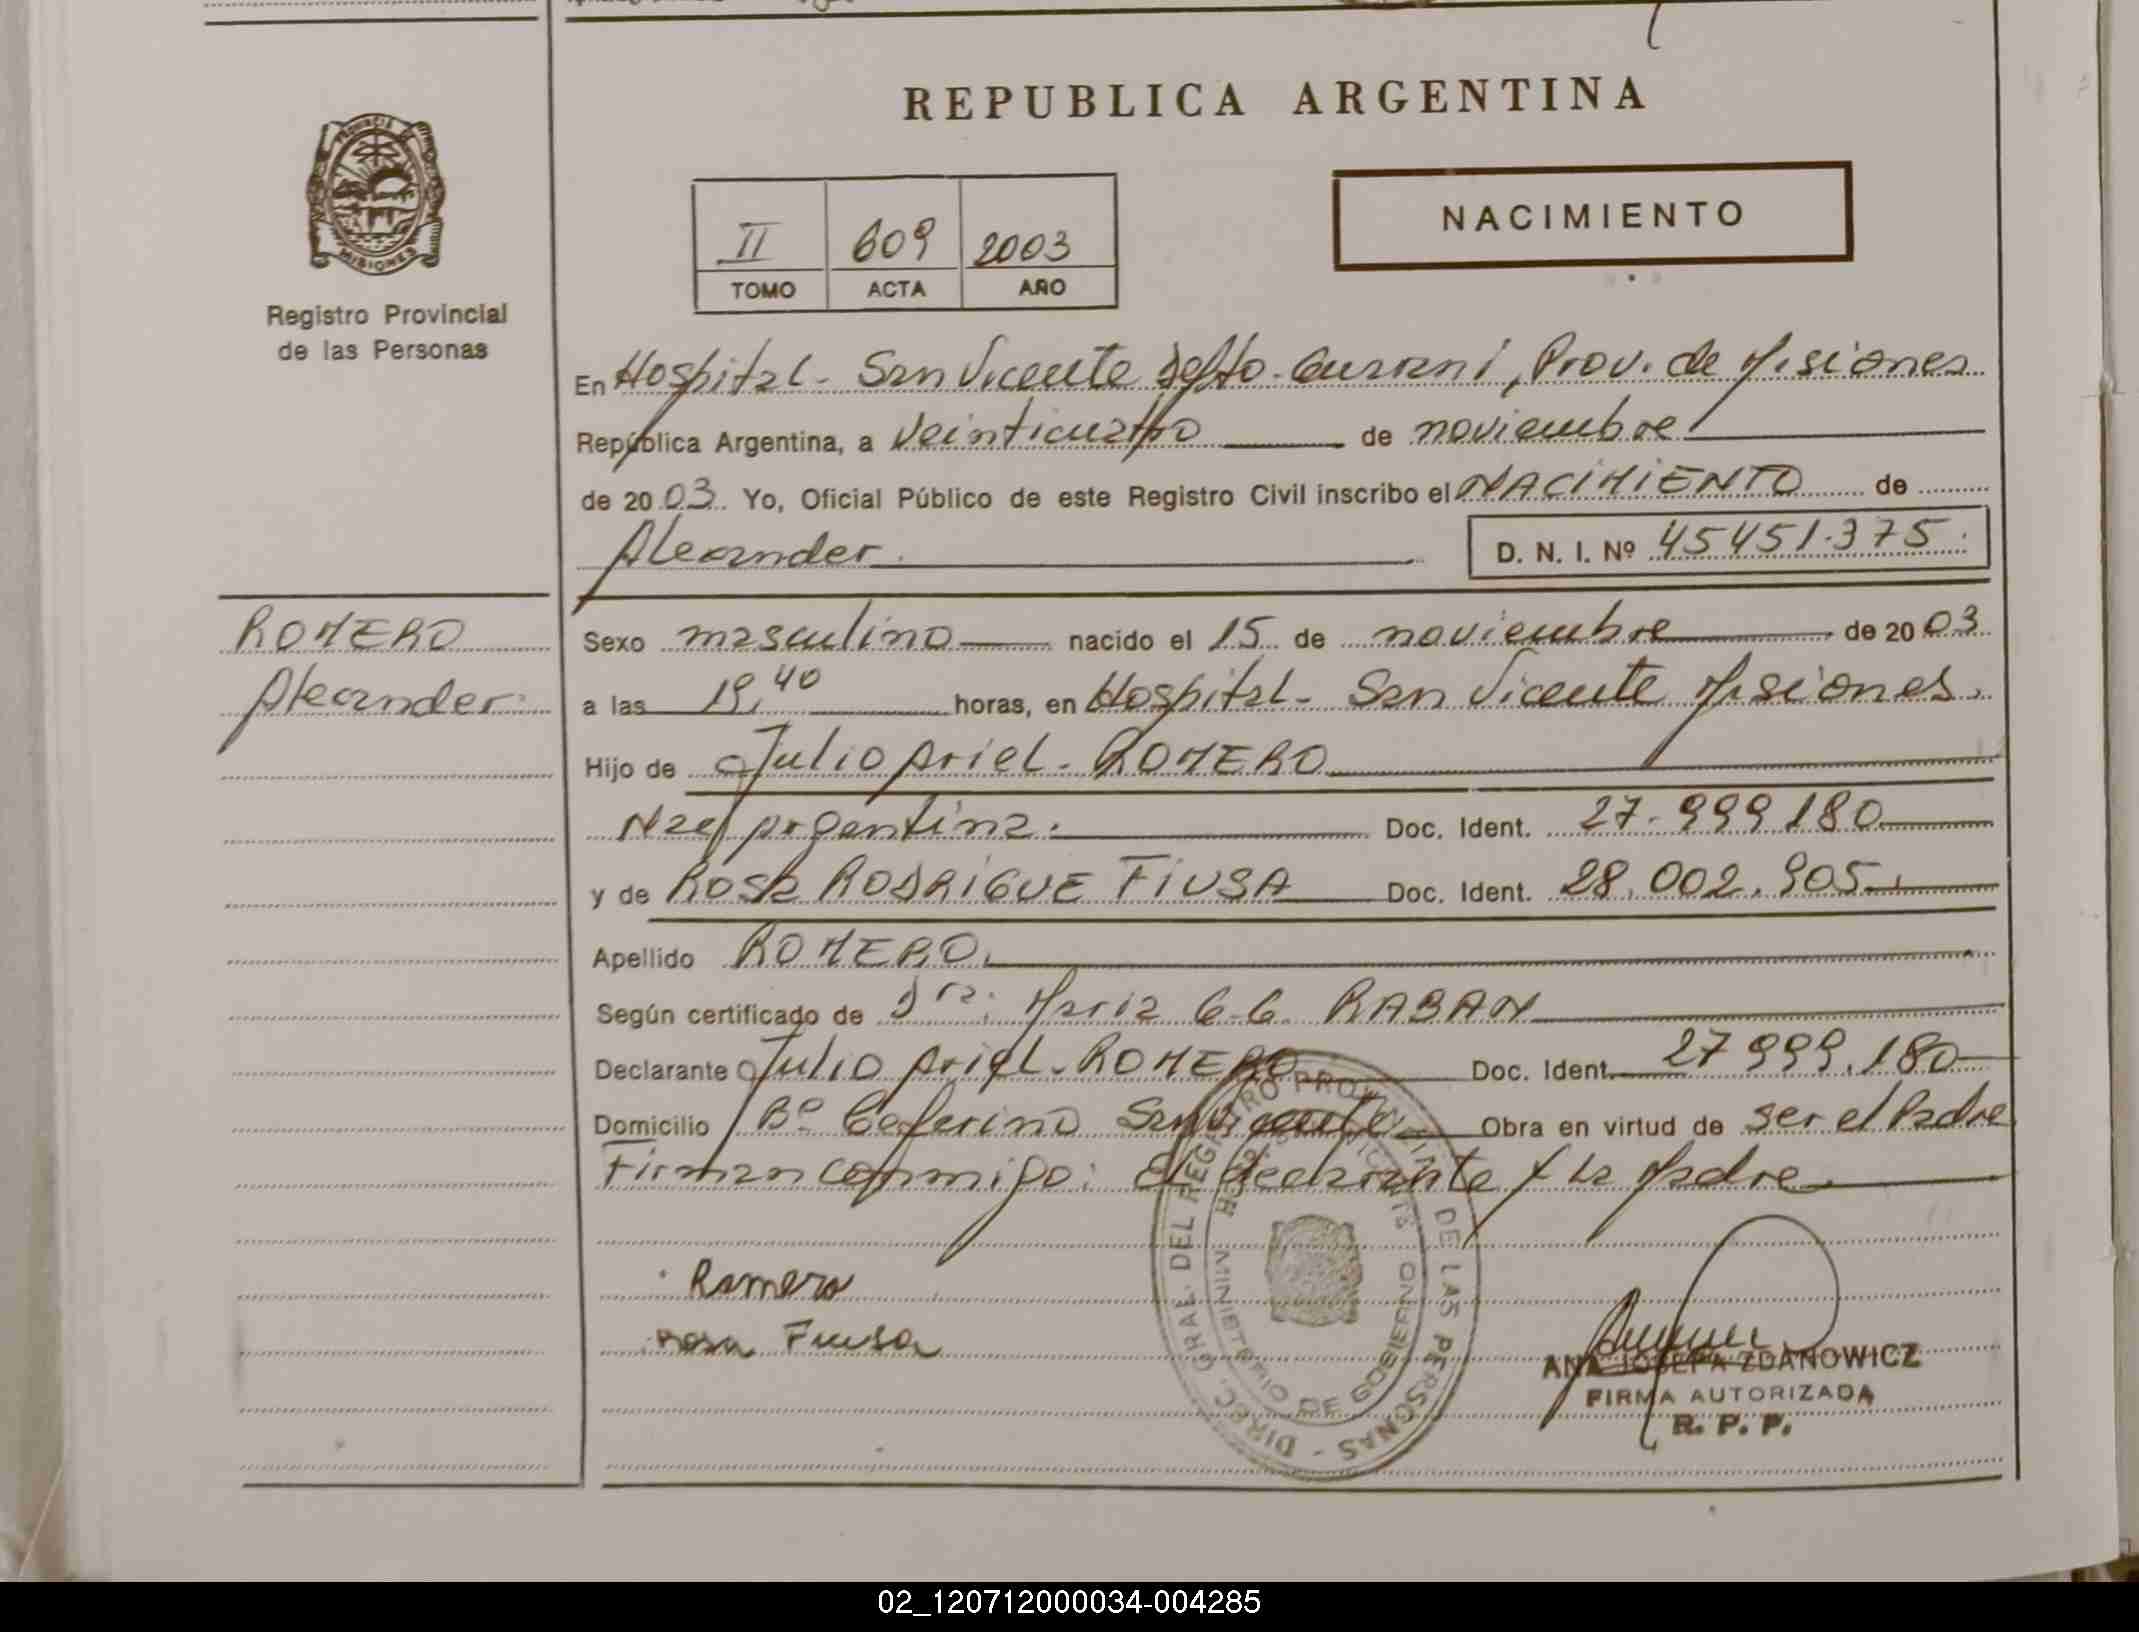 REPUBLICA ARGENTINA
PROVINCIA DE MISIONES
Registro Provincial
de las Personas
II 609 2003
TOMO ACTA AÑO
NACIMIENTO
En Hospital - San Vicente Dpto. Guarani, Prov. de Misiones
República Argentina, a veinticuatro de noviembre
de 2003. Yo, Oficial Público de este Registro Civil inscribo el NACIMIENTO de
Alexander. D. N. I. Nº 45451.375.
ROMERO
Alexander.
Sexo masculino nacido el 15 de noviembre de 2003
a las 19,40 horas, en Hospital - San Vicente Misiones.
Hijo de Julio Ariel - ROMERO
Nac. Argentina. Doc. Ident. 27.999.180
y de Rosa RODRIGUE FIUSA Doc. Ident. 28.002.905.
Apellido ROMERO.
Según certificado de Dra. Maria G.G. RABAN
Declarante Julio Ariel - ROMERO Doc. Ident. 27 999.180
Domicilio Bº Ceferino San Vicente Obra en virtud de ser el Padre
Firman conmigo: El declarante y la Madre
Romero
Rosa Fiusa
DIREC. GRAL. DEL REGISTRO PROVINCIAL DE LAS PERSONAS -
MINISTERIO DE GOBIERNO
ANA JOSEFA ZDANOWICZ
FIRMA AUTORIZADA
R. P. P.
02_120712000034-004285